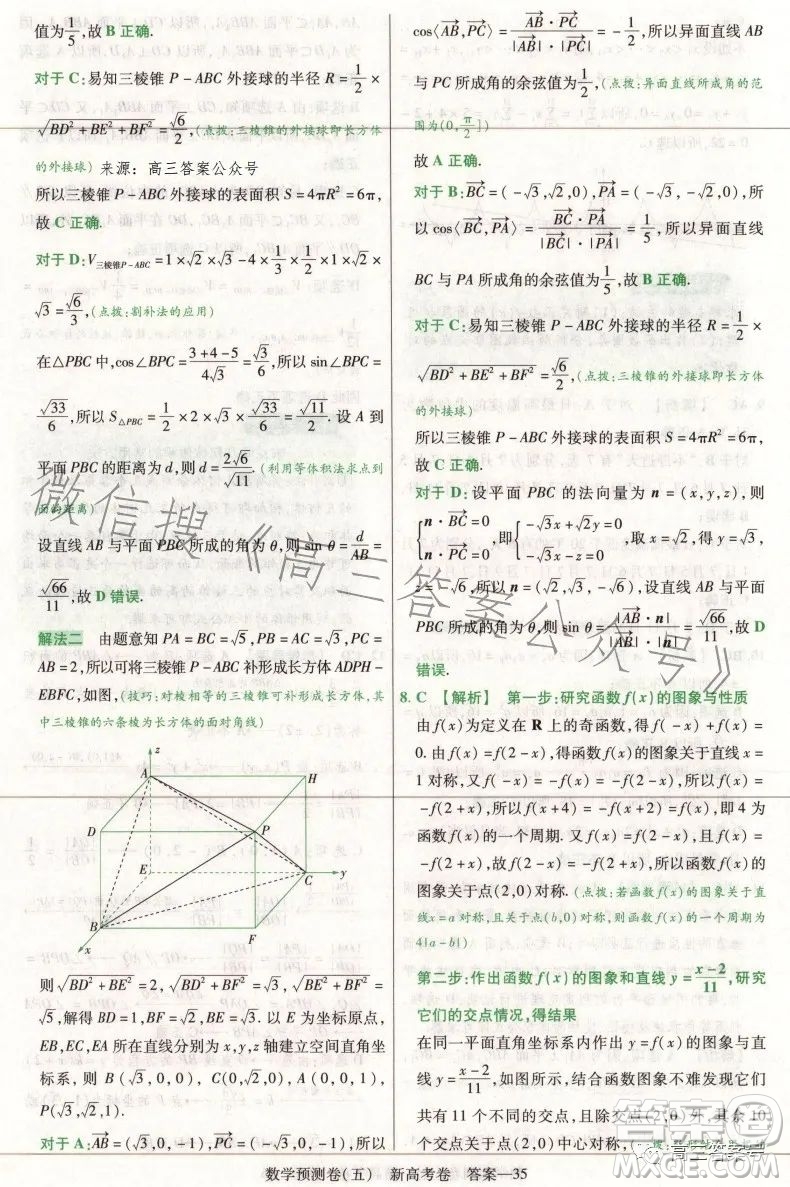 值为1/5,故 B 正确.
对于 C:易知三棱锥 P-ABC 外接球的半径 R=1/2×
√(BD²+BE²+BF²)=√6/2,(点拨:三棱锥的外接球即长方体
的外接球)来源:高三答案公众号
所以三棱锥 P-ABC 外接球的表面积 S=4πR²=6π,
故 C 正确.
对于 D:V三棱锥P-ABC=1×√2×√3-4×1/3×1/2×1×√2×
√3=√6/3,(点拨:割补法的应用)
在△PBC 中,cos∠BPC=(3+4-5)/(4√3)=√3/6,所以 sin∠BPC=
√33/6,所以 S△PBC=1/2×2×√3×√33/6=√11/2. 设 A 到
平面 PBC 的距离为 d,则 d=2√6/√11.(利用等体积法求点到
面的距离)
设直线 AB 与平面 PBC 所成的角为 θ,则 sin θ=d/AB=
√66/11,故 D 错误.
解法二 由题意知 PA=BC=√5,PB=AC=√3,PC=
AB=2,所以可将三棱锥 P-ABC 补形成长方体 ADPH-
EBFC,如图,(技巧:对棱相等的三棱锥可补形成长方体,其
中三棱锥的六条棱为长方体的面对角线)
z
A
H
D
P
E
C
y
B
F
x
则 √(BD²+BE²)=2,√(BD²+BF²)=√3,√(BE²+BF²)=
√5,解得 BD=1,BF=√2,BE=√3. 以 E 为坐标原点,
EB,EC,EA 所在直线分别为 x,y,z 轴建立空间直角坐
标系,则 B(√3,0,0),C(0,√2,0),A(0,0,1),
P(√3,√2,1).
对于 A:AB=(√3,0,-1),PC=(-√3,0,-1),所以
cos⟨AB,PC⟩=AB·PC/(|AB|·|PC|)=-1/2,所以异面直线 AB
与 PC 所成角的余弦值为1/2,(点拨:异面直线所成角的范
围为(0,π/2])
故 A 正确.
对于 B:BC=(-√3,√2,0),PA=(-√3,-√2,0),所
以 cos⟨BC,PA⟩=BC·PA/(|BC|·|PA|)=1/5,所以异面直线
BC 与 PA 所成角的余弦值为1/5,故 B 正确.
对于 C:易知三棱锥 P-ABC 外接球的半径 R=1/2×
√(BD²+BE²+BF²)=√6/2,(点拨:三棱锥的外接球即长方体
的外接球)
所以三棱锥 P-ABC 外接球的表面积 S=4πR²=6π,
故 C 正确.
对于 D:设平面 PBC 的法向量为 n=(x,y,z),则
{n·BC=0, n·PC=0, 即{-√3x+√2y=0, -√3x-z=0, 取 x=√2,得 y=√3,
z=-√6,所以 n=(√2,√3,-√6),设直线 AB 与平面
PBC 所成的角为 θ,则 sin θ=|AB·n|/(|AB|·|n|)=√66/11,故 D
错误.
8. C 【解析】 第一步:研究函数 f(x)的图象与性质
由 f(x)为定义在 R 上的奇函数,得 f(-x)+f(x)=
0. 由 f(x)=f(2-x),得函数 f(x)的图象关于直线 x=
1 对称,又 f(-x)=-f(x)=-f(2-x),所以 f(x)=
-f(2+x),所以 f(x+4)=-f(x+2)=f(x),即 4 为
函数 f(x)的一个周期. 又 f(x)=f(2-x),且 f(x)=
-f(2+x),所以 f(2-x)=-f(2+x),故函数 f(x)的
图象关于点(2,0)对称.(点拨:若函数 f(x)的图象关于直
线 x=a 对称,且关于点(b,0)对称,则函数 f(x)的一个周期为
4|a-b|)
第二步:作出函数 f(x)的图象和直线 y=(x-2)/11,研究
它们的交点情况,得结果
在同一平面直角坐标系内作出 y=f(x)的图象与直
线 y=(x-2)/11,如图所示,结合函数图象不难发现它们
共有 11 个不同的交点,且除交点(2,0)外,其余 10
个交点关于点(2,0)中心对称,
数学预测卷(五) 新高考卷 答案—35
微信搜《高三答案公众号》
答案圈
高三答案号